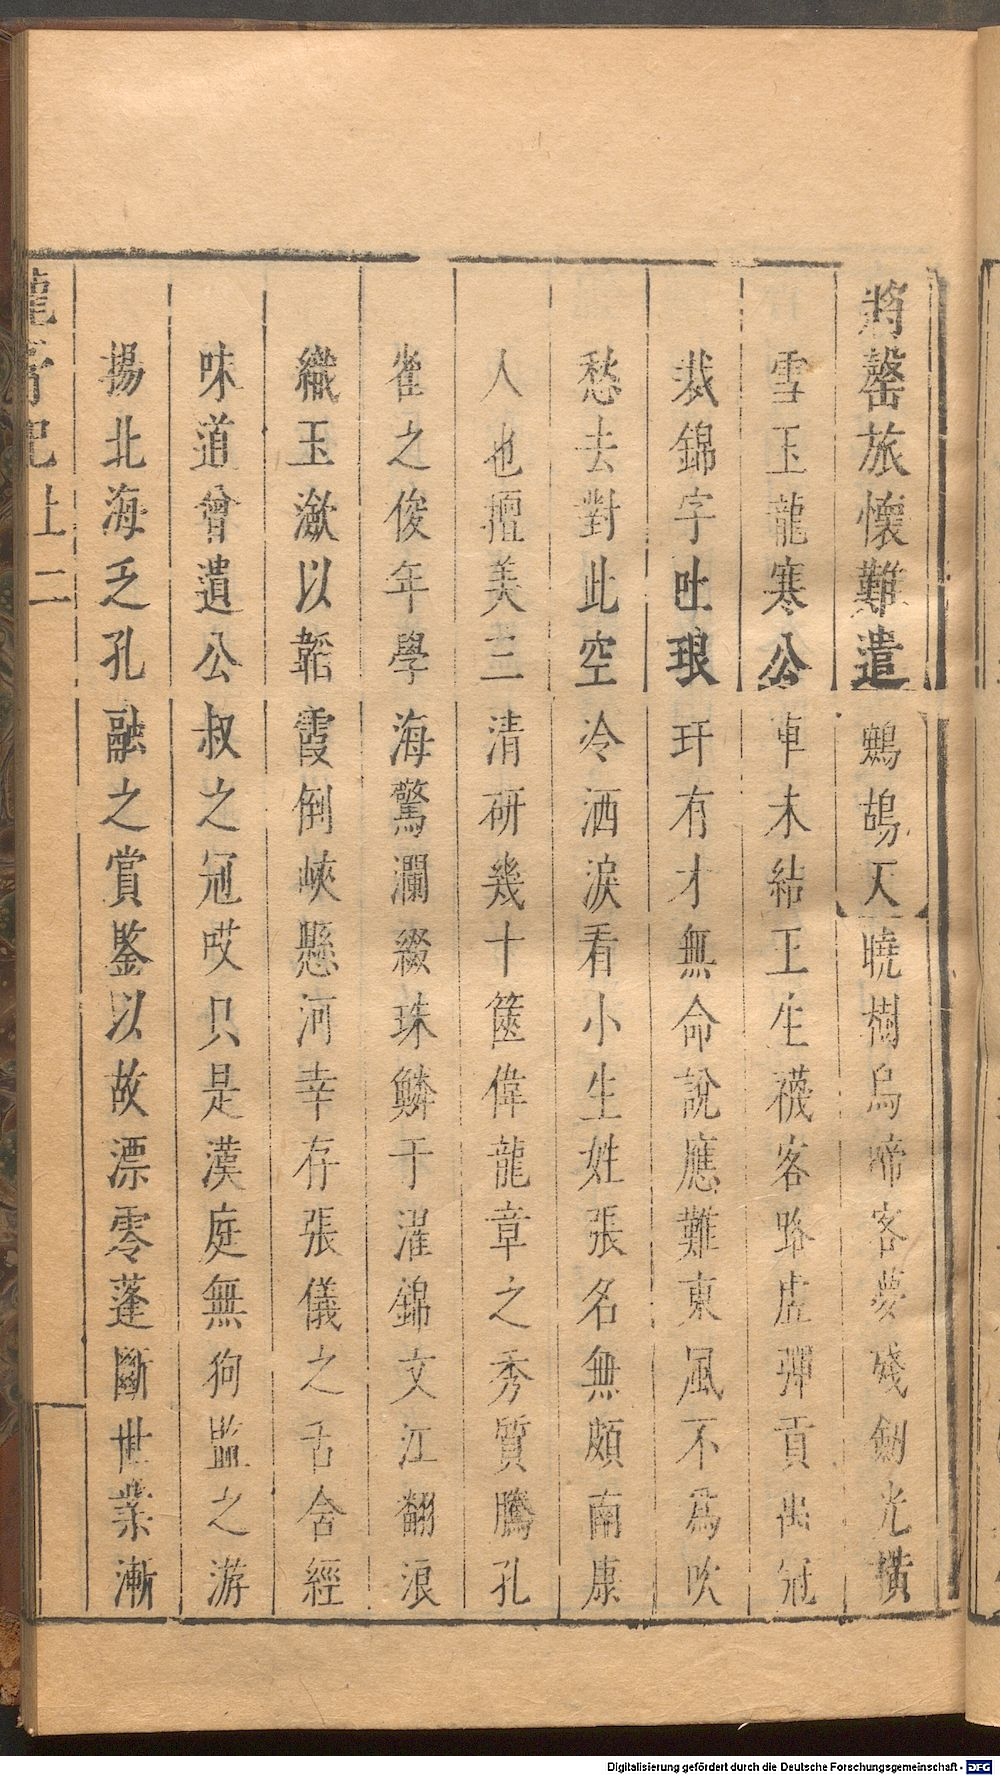 將罄旅懷難遣鷓鴣天曉樹烏啼客夢殘劍光橫
雪玉龍寒公車未結王生襪客路虛彈貢禹冠
裁錦字吐琅玕有才無命說應難東風不為吹
愁去對此空冷洒淚看小生姓張名無頗南康
人也擅美三清研幾十篋偉龍章之秀質騰孔
雀之俊年學海驚瀾綴珠鱗于濯錦文江翻浪
織玉瀫以韜霞倒峽懸河幸存張儀之舌含經
味道曾遺公叔之冠哎只是漢庭無狗監之游
揚北海乏孔融之賞鑒以故漂零蓬斷世業漸
龍膏記上 二
Digitalisierung gefördert durch die Deutsche Forschungsgemeinschaft - DFG